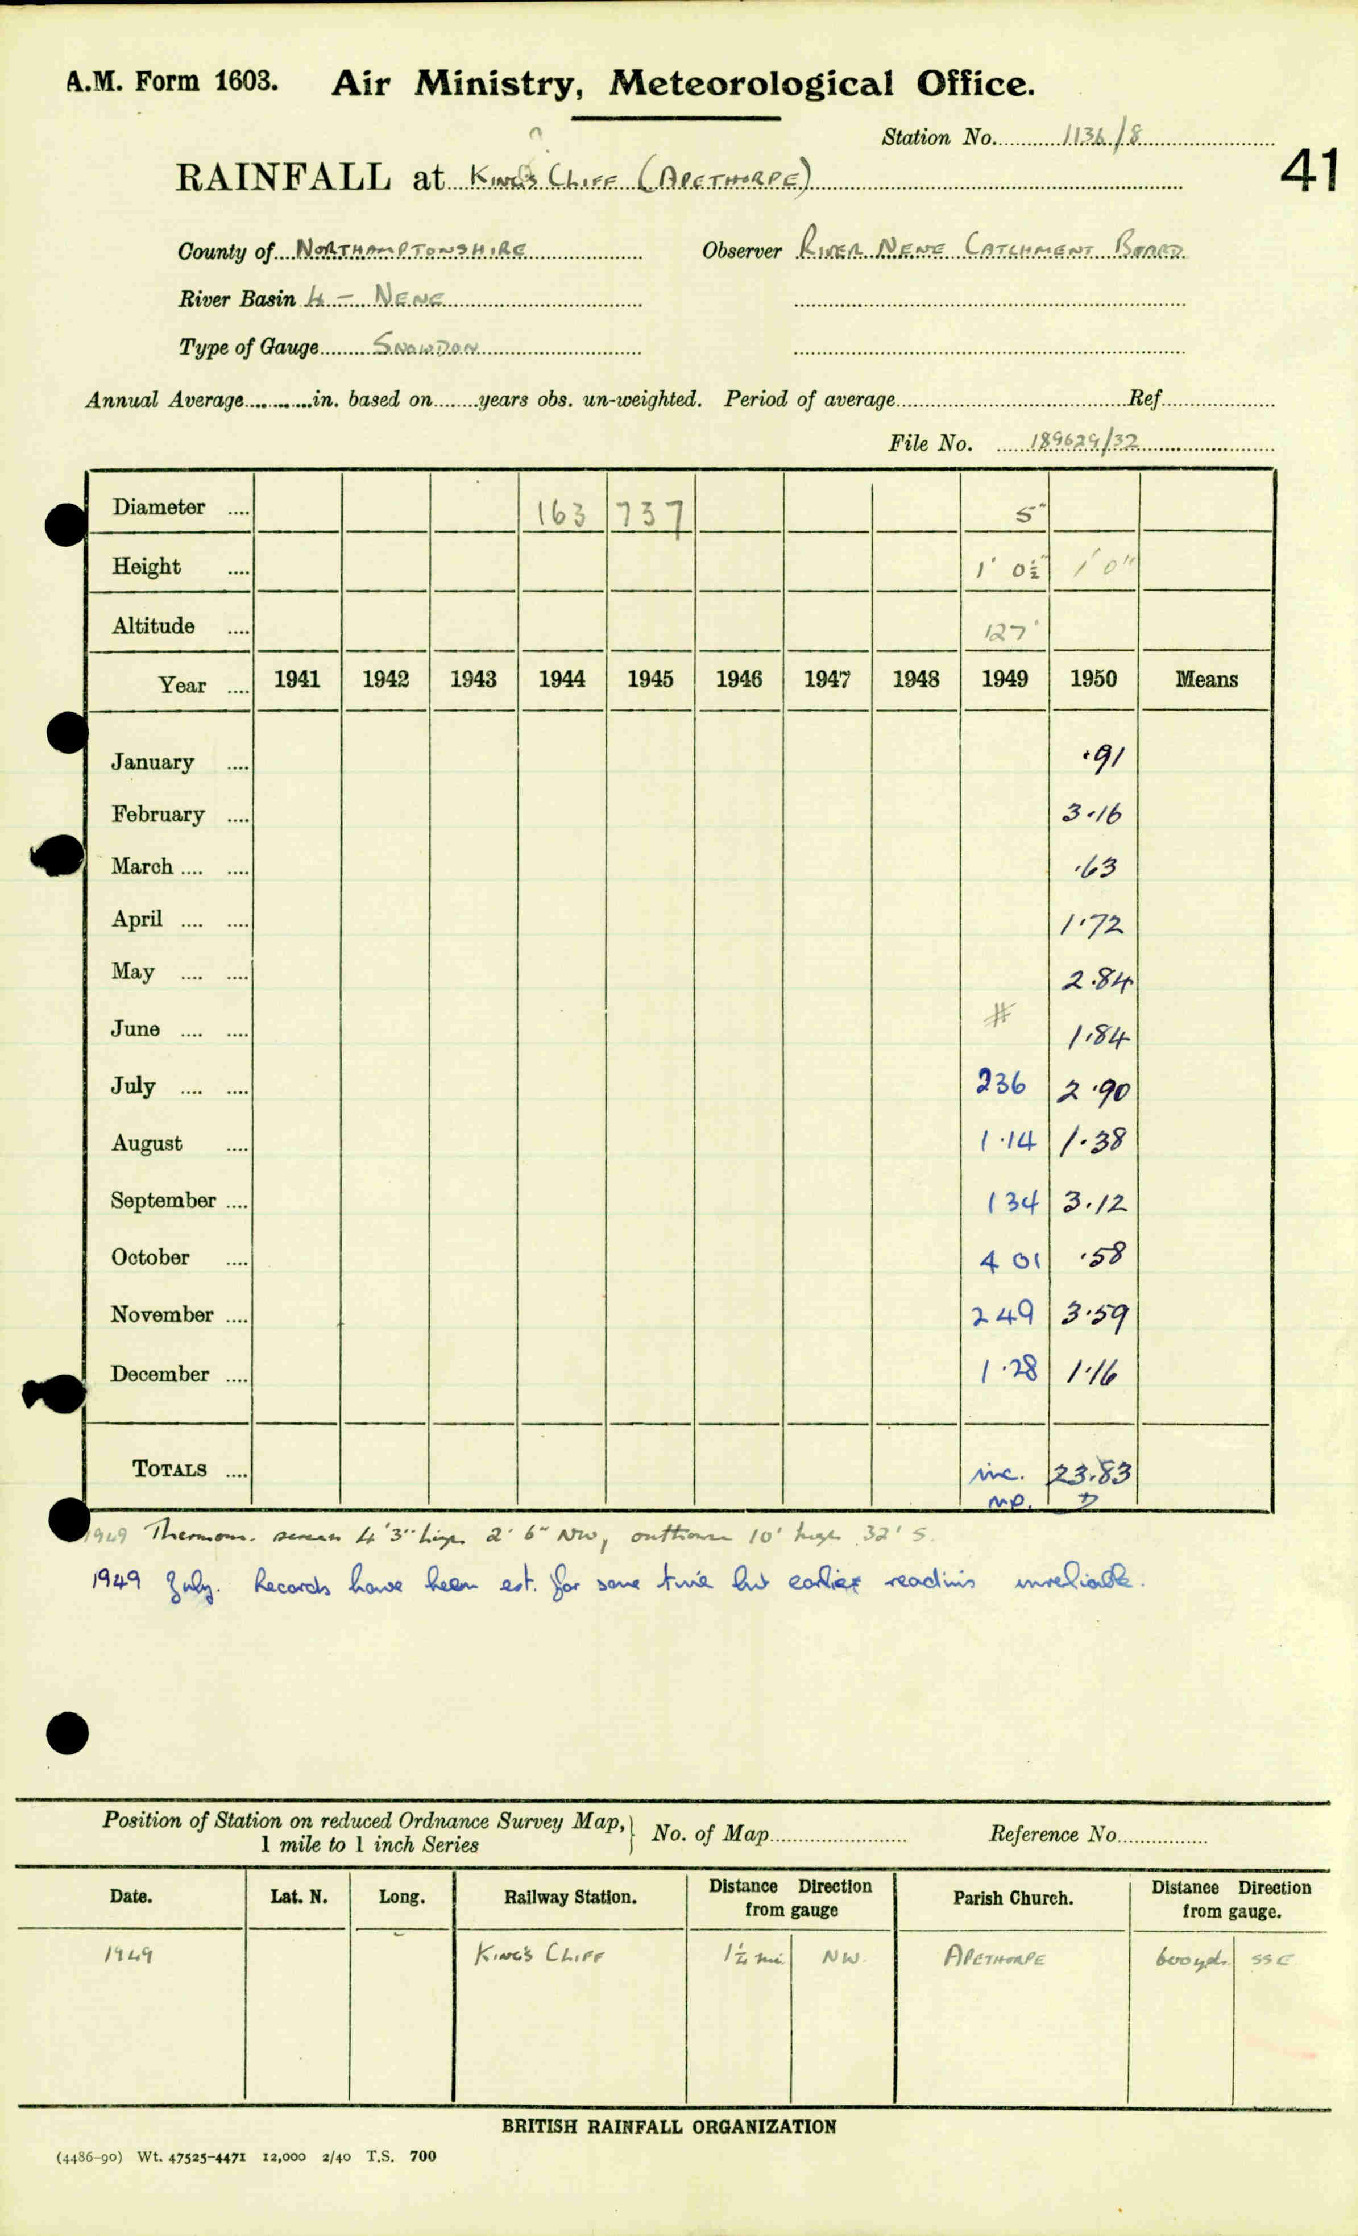 A.M. Form 1603. Air Ministry, Meteorological Office.
Station No. 1136/8
RAINFALL at King's Cliff (Apethorpe)
41
County of Northamptonshire Observer River Nene Catchment Board
River Basin 4 - Nene
Type of Gauge Snowdon
Annual Average in. based on years obs. un-weighted. Period of average Ref
File No. 189629/32
Diameter 163 737 5"
Height 1' 0½" 1' 0"
Altitude 127'
Year 1941 1942 1943 1944 1945 1946 1947 1948 1949 1950 Means
January ·91
February 3·16
March ·63
April 1·72
May 2·84
June # 1·84
July 236 2·90
August 1·14 1·38
September 134 3·12
October 4 01 ·58
November 249 3·59
December 1·28 1·16
TOTALS inc. 23·83
1949 Thermom. screen 4'3" high 2' 6" NW, outhouse 10' high 32' S.
1949 July. Records have been est. for some time but earlier readings unreliable.
Position of Station on reduced Ordnance Survey Map,
1 mile to 1 inch Series } No. of Map Reference No.
Date. Lat. N. Long. Railway Station. Distance from gauge Direction Parish Church. Distance from gauge. Direction
1949 King's Cliff 1¼ mi NW. Apethorpe 600 yds. SSE
BRITISH RAINFALL ORGANIZATION
(4486-90) Wt. 47525-4471 12,000 2/40 T.S. 700